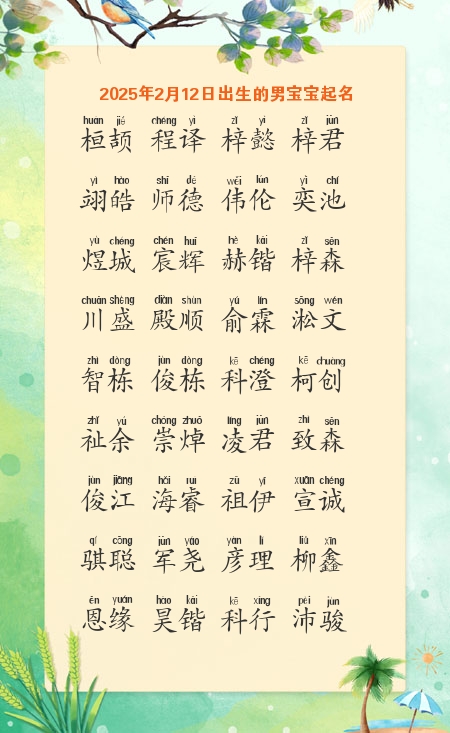 2025年2月12日出生的男宝宝起名
huán jié chéng yì zǐ yì zǐ jūn
桓颉 程译 梓懿 梓君
yì hào shī dé wěi lún yì chí
翊皓 师德 伟伦 奕池
yù chéng chén huī hè kǎi zǐ sēn
煜城 宸辉 赫锴 梓森
chuān shèng diàn shùn yú lín sōng wén
川盛 殿顺 俞霖 淞文
zhì dòng jùn dòng kē chéng kē chuàng
智栋 俊栋 科澄 柯创
zhǐ yú chóng zhuō líng jūn zhì sēn
祉余 崇焯 凌君 致森
jùn jiāng hǎi ruì zǔ yī xuān chéng
俊江 海睿 祖伊 宣诚
qí cōng jūn yáo yàn lǐ liǔ xīn
骐聪 军尧 彦理 柳鑫
ēn yuán hào kǎi kē xíng pèi jùn
恩缘 昊锴 科行 沛骏